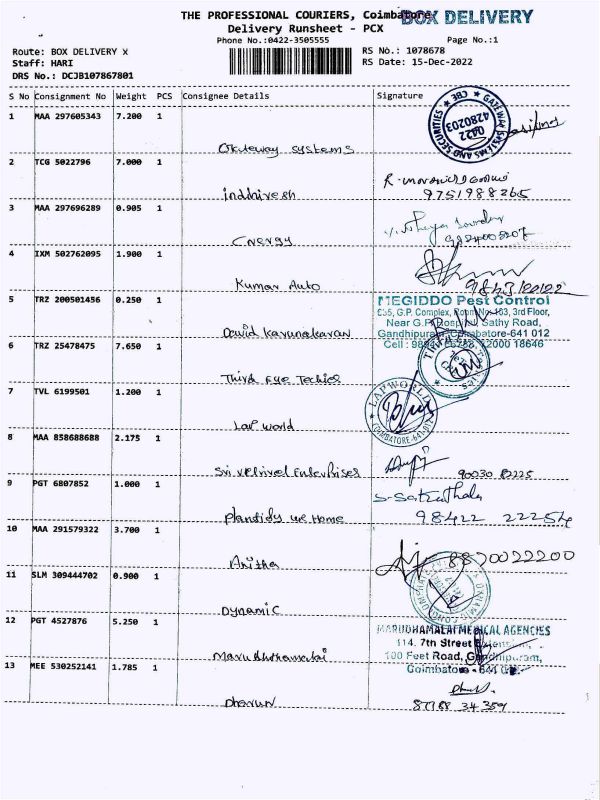 THE PROFESSIONAL COURIERS, Coimbatore
BOX DELIVERY
Delivery Runsheet - PCX
Phone No.:0422-3505555
Page No.:1
Route: BOX DELIVERY x
RS No.: 1078678
Staff: HARI
RS Date: 15-Dec-2022
DRS No.: DCJB107867801
S No Consignment No Weight PCS Consignee Details Signature
1 MAA 297605343 7.200 1
systems
GATEWAY SYSTEMS AND SECURITIES CBE
0422
4280203
2 TCG 5022796 7.000 1
indhivesh
9751988265
3 MAA 297696289 0.905 1
Cnergy
4 IXM 502762095 1.900 1
Kumar Auto
5 TRZ 200501456 0.250 1
David Karunakaran
MEGIDDO Pest Control
G.P. Complex, Room No.103, 3rd Floor,
Near G.P. Hospital, Sathy Road,
Gandhipuram, Coimbatore-641 012
Cell : 18646
6 TRZ 25478475 7.650 1
Third eye Techies
7 TVL 6199501 1.200 1
Lap world
LAP WORLD
COIMBATORE-641 012
8 MAA 858688688 2.175 1
Sri vetrivel Enterprises
90030
9 PGT 6807852 1.000 1
Home
98422 22254
10 MAA 291579322 3.700 1
Anitha
8870022200
11 SLM 309444702 0.900 1
Dynamic
12 PGT 4527876 5.250 1
Marudhamalai
MARUDHAMALAI MEDICAL AGENCIES
114. 7th Street Extension,
100 Feet Road, Gandhipuram,
Coimbatore - 641
13 MEE 530252141 1.785 1
Dharun
87188 34 359